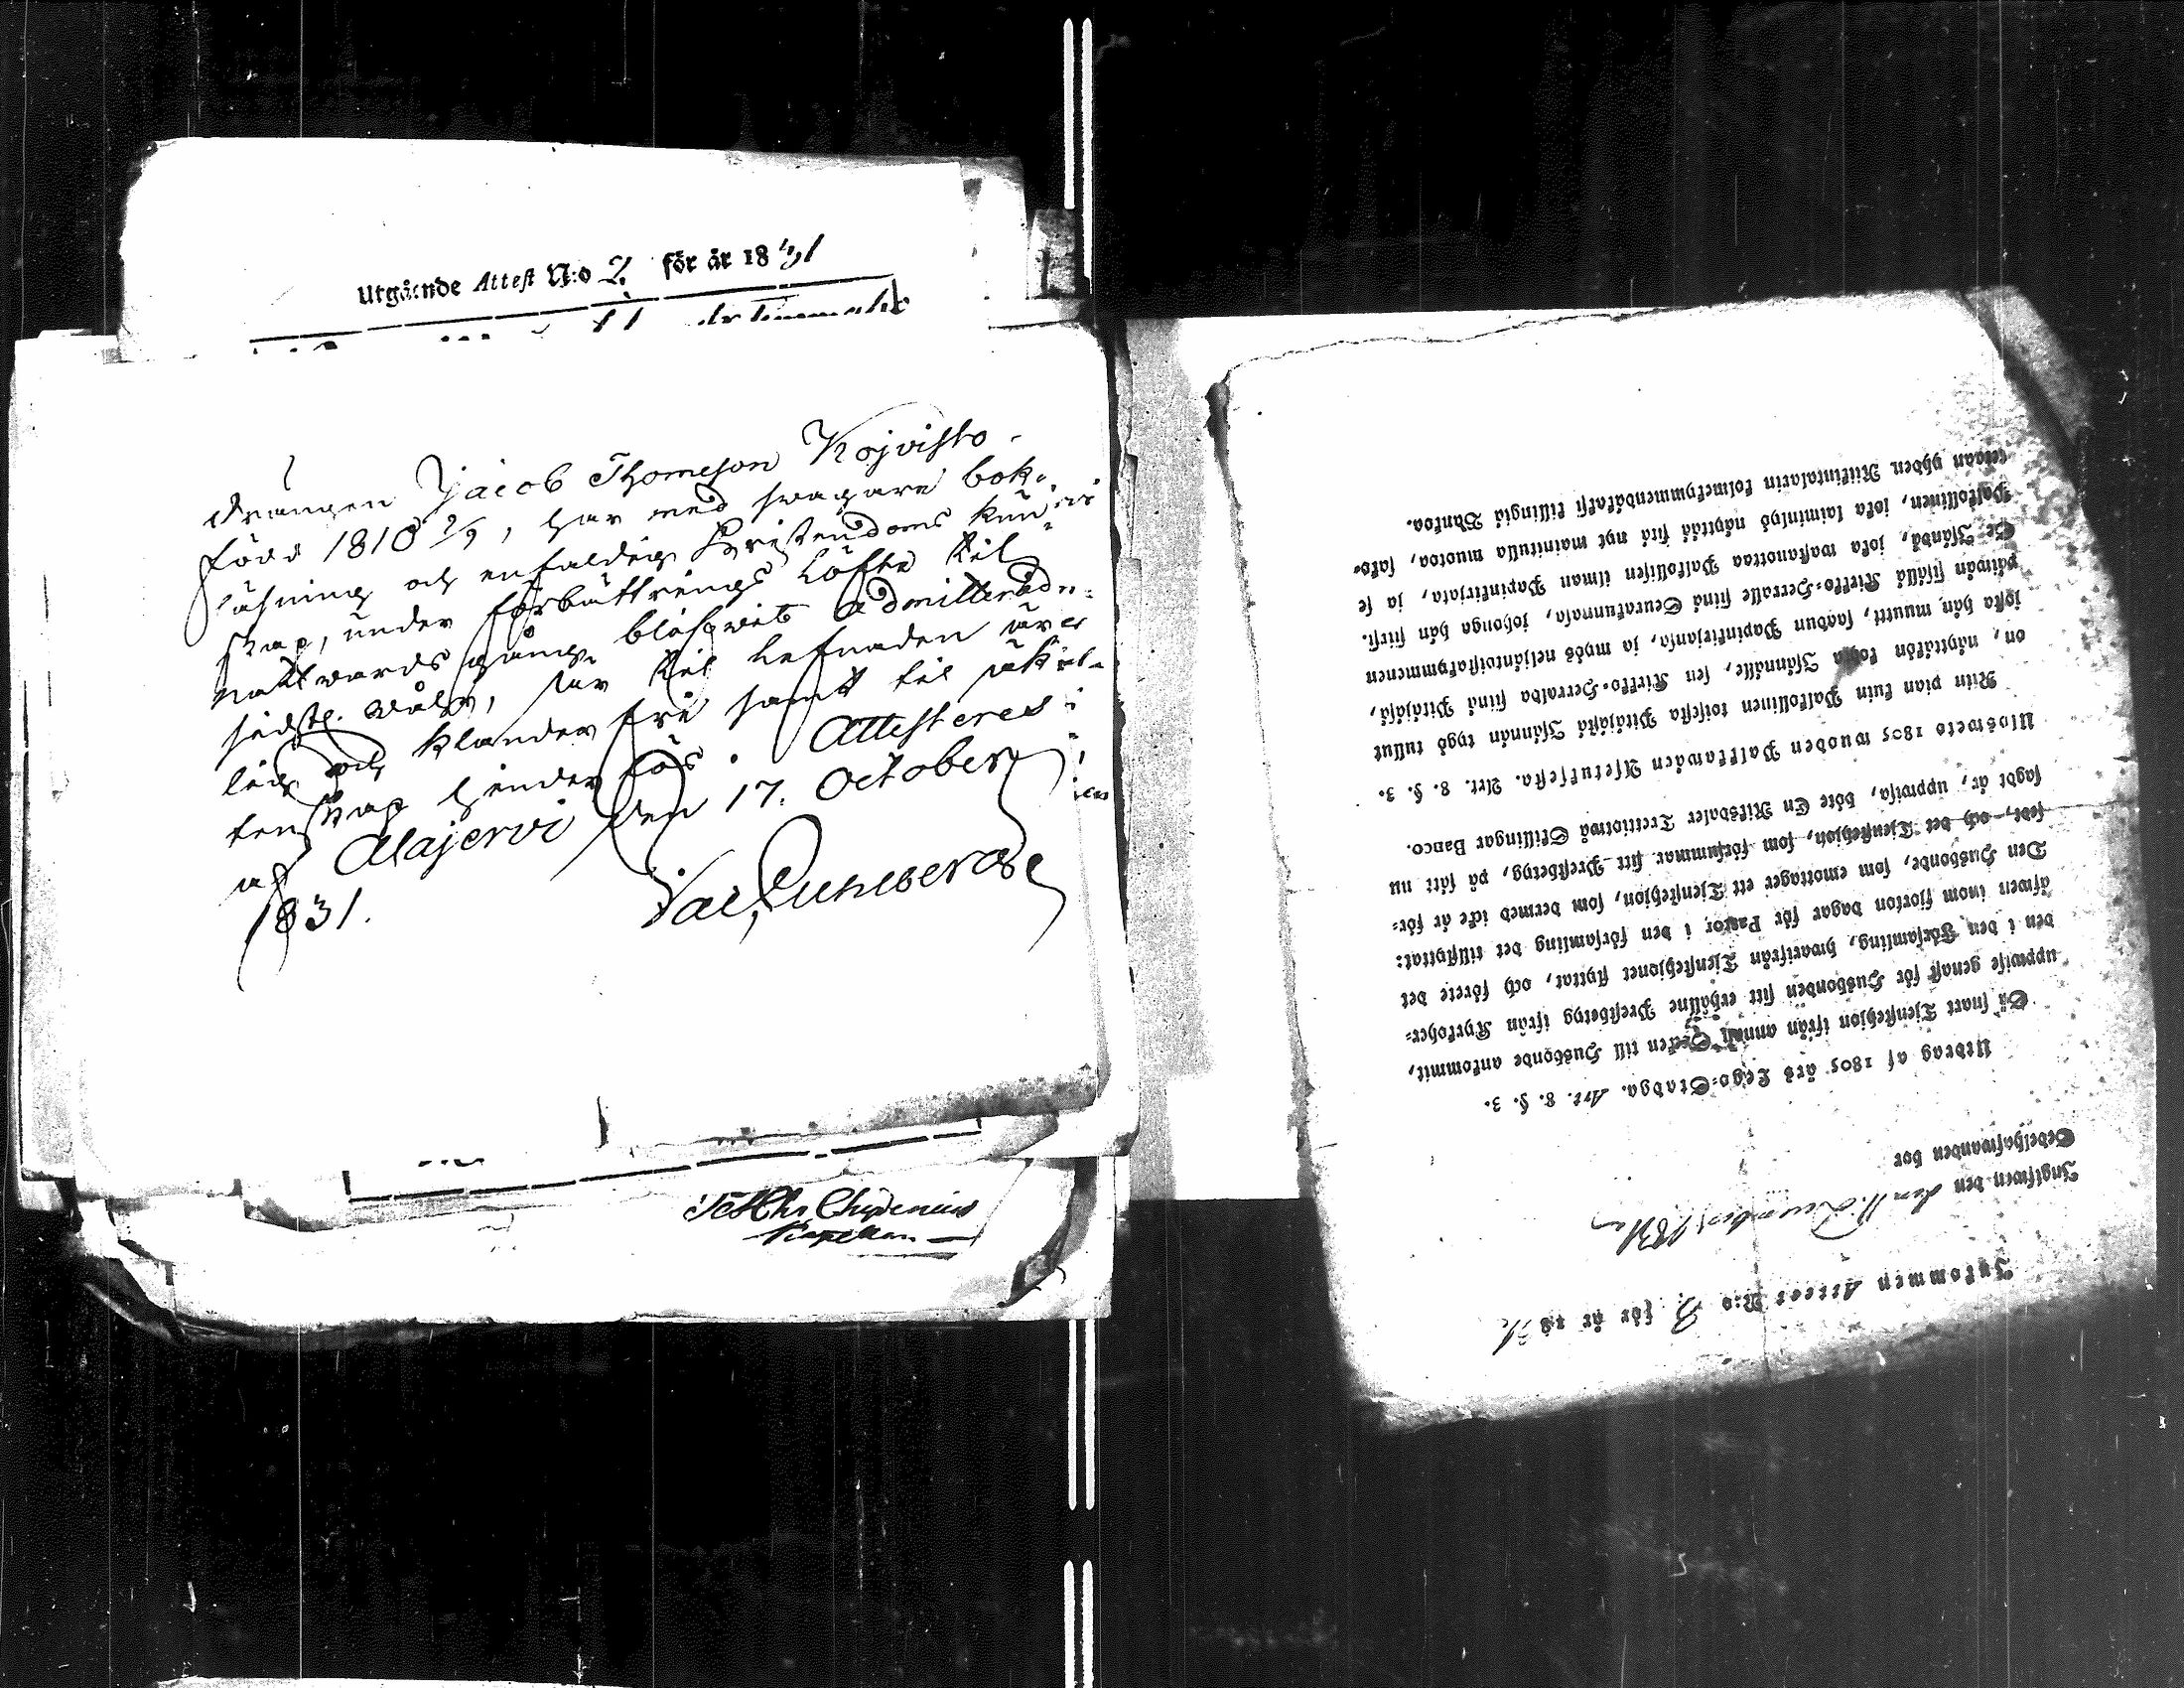 Utgående Attest N:o 2 för år 1831
drängen Jacob Thomeson Kojvisto
född 1810 2/9, har med svagare bok-
läsning och enfaldig Kristendoms kun
skap, under förbättrings löfte til
nattvards gång blifvit admitterad
sidstl. är til lefnaden
lig och klander fri samt til
tenskap hinder lös. Attesteres
af Alajervi den 17. October
1831.
Jac.
Chydenius
Inkommen Attest N:o 2 för år 18
Inskrifwen den 1831
Sedelhafwanden bor
Utdrag af 1805 års Lego-Stadga. Art. 8. §. 3.
Så snart Tjenstehjon ifrån annan Socken till Husbonde ankommit,
uppwise genast för Husbonden sitt erhållne Prestbetyg ifrån Kyrkoher-
den i den Församling, hwarifrån Tjenstehjonet flyttat, och förete det
äfwen inom fjorton dagar för Pastor i den församling det tillflyttat:
Den Husbonde, som emottager ett Tjenstehjon, som dermed icke är för-
sedt, och det Tjenstehjon, som försummar sitt Prestbetyg, på sätt nu
sagdt är, uppwisa, böte En Riksdaler Trettiotwå Skillingar Banco.
Ulosweto 1805 wuoden Palkkawäen Asetuksesta. Art. 8. §. 3.
Niin pian kuin Palkollinen toisesta Pitäjästä Isännän tygö tullut
on, näyttäkön Isännälle, sen Kirkko-Herralda siinä Pitäjäsä,
josta hän muutt, saadun Papinkirjansa, ja myös neljäntoistakymmenen
päiwän sisällä Kirkko-Herralle siinä Seurakunnasa, johonga hän siirsi.
Se Isändä, joka wastanottaa Palkollisen ilman Papinkirjata, ja se
Palkollinen, joka laiminlyö näyttää sitä nyt mainitulla muotoa, sako-
tetaan yhden Riikintalarin kolmekymmendäkaksi killingiä Bankoa.